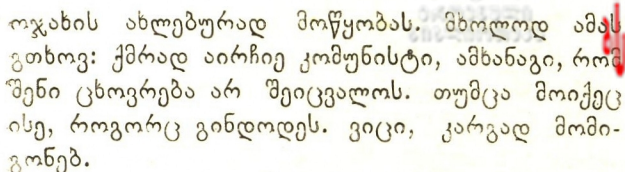 ოჯახის ახლებურად მოწყობას. მხოლოდ ამას
გთხოვ: ქმრად აირჩიე კომუნისტი, ამხანაგი, რომ
შენი ცხოვრება არ შეიცვალოს. თუმცა მოიქეც
ისე, როგორც გინდოდეს. ვიცი, კარგად მომი-
გონებ.